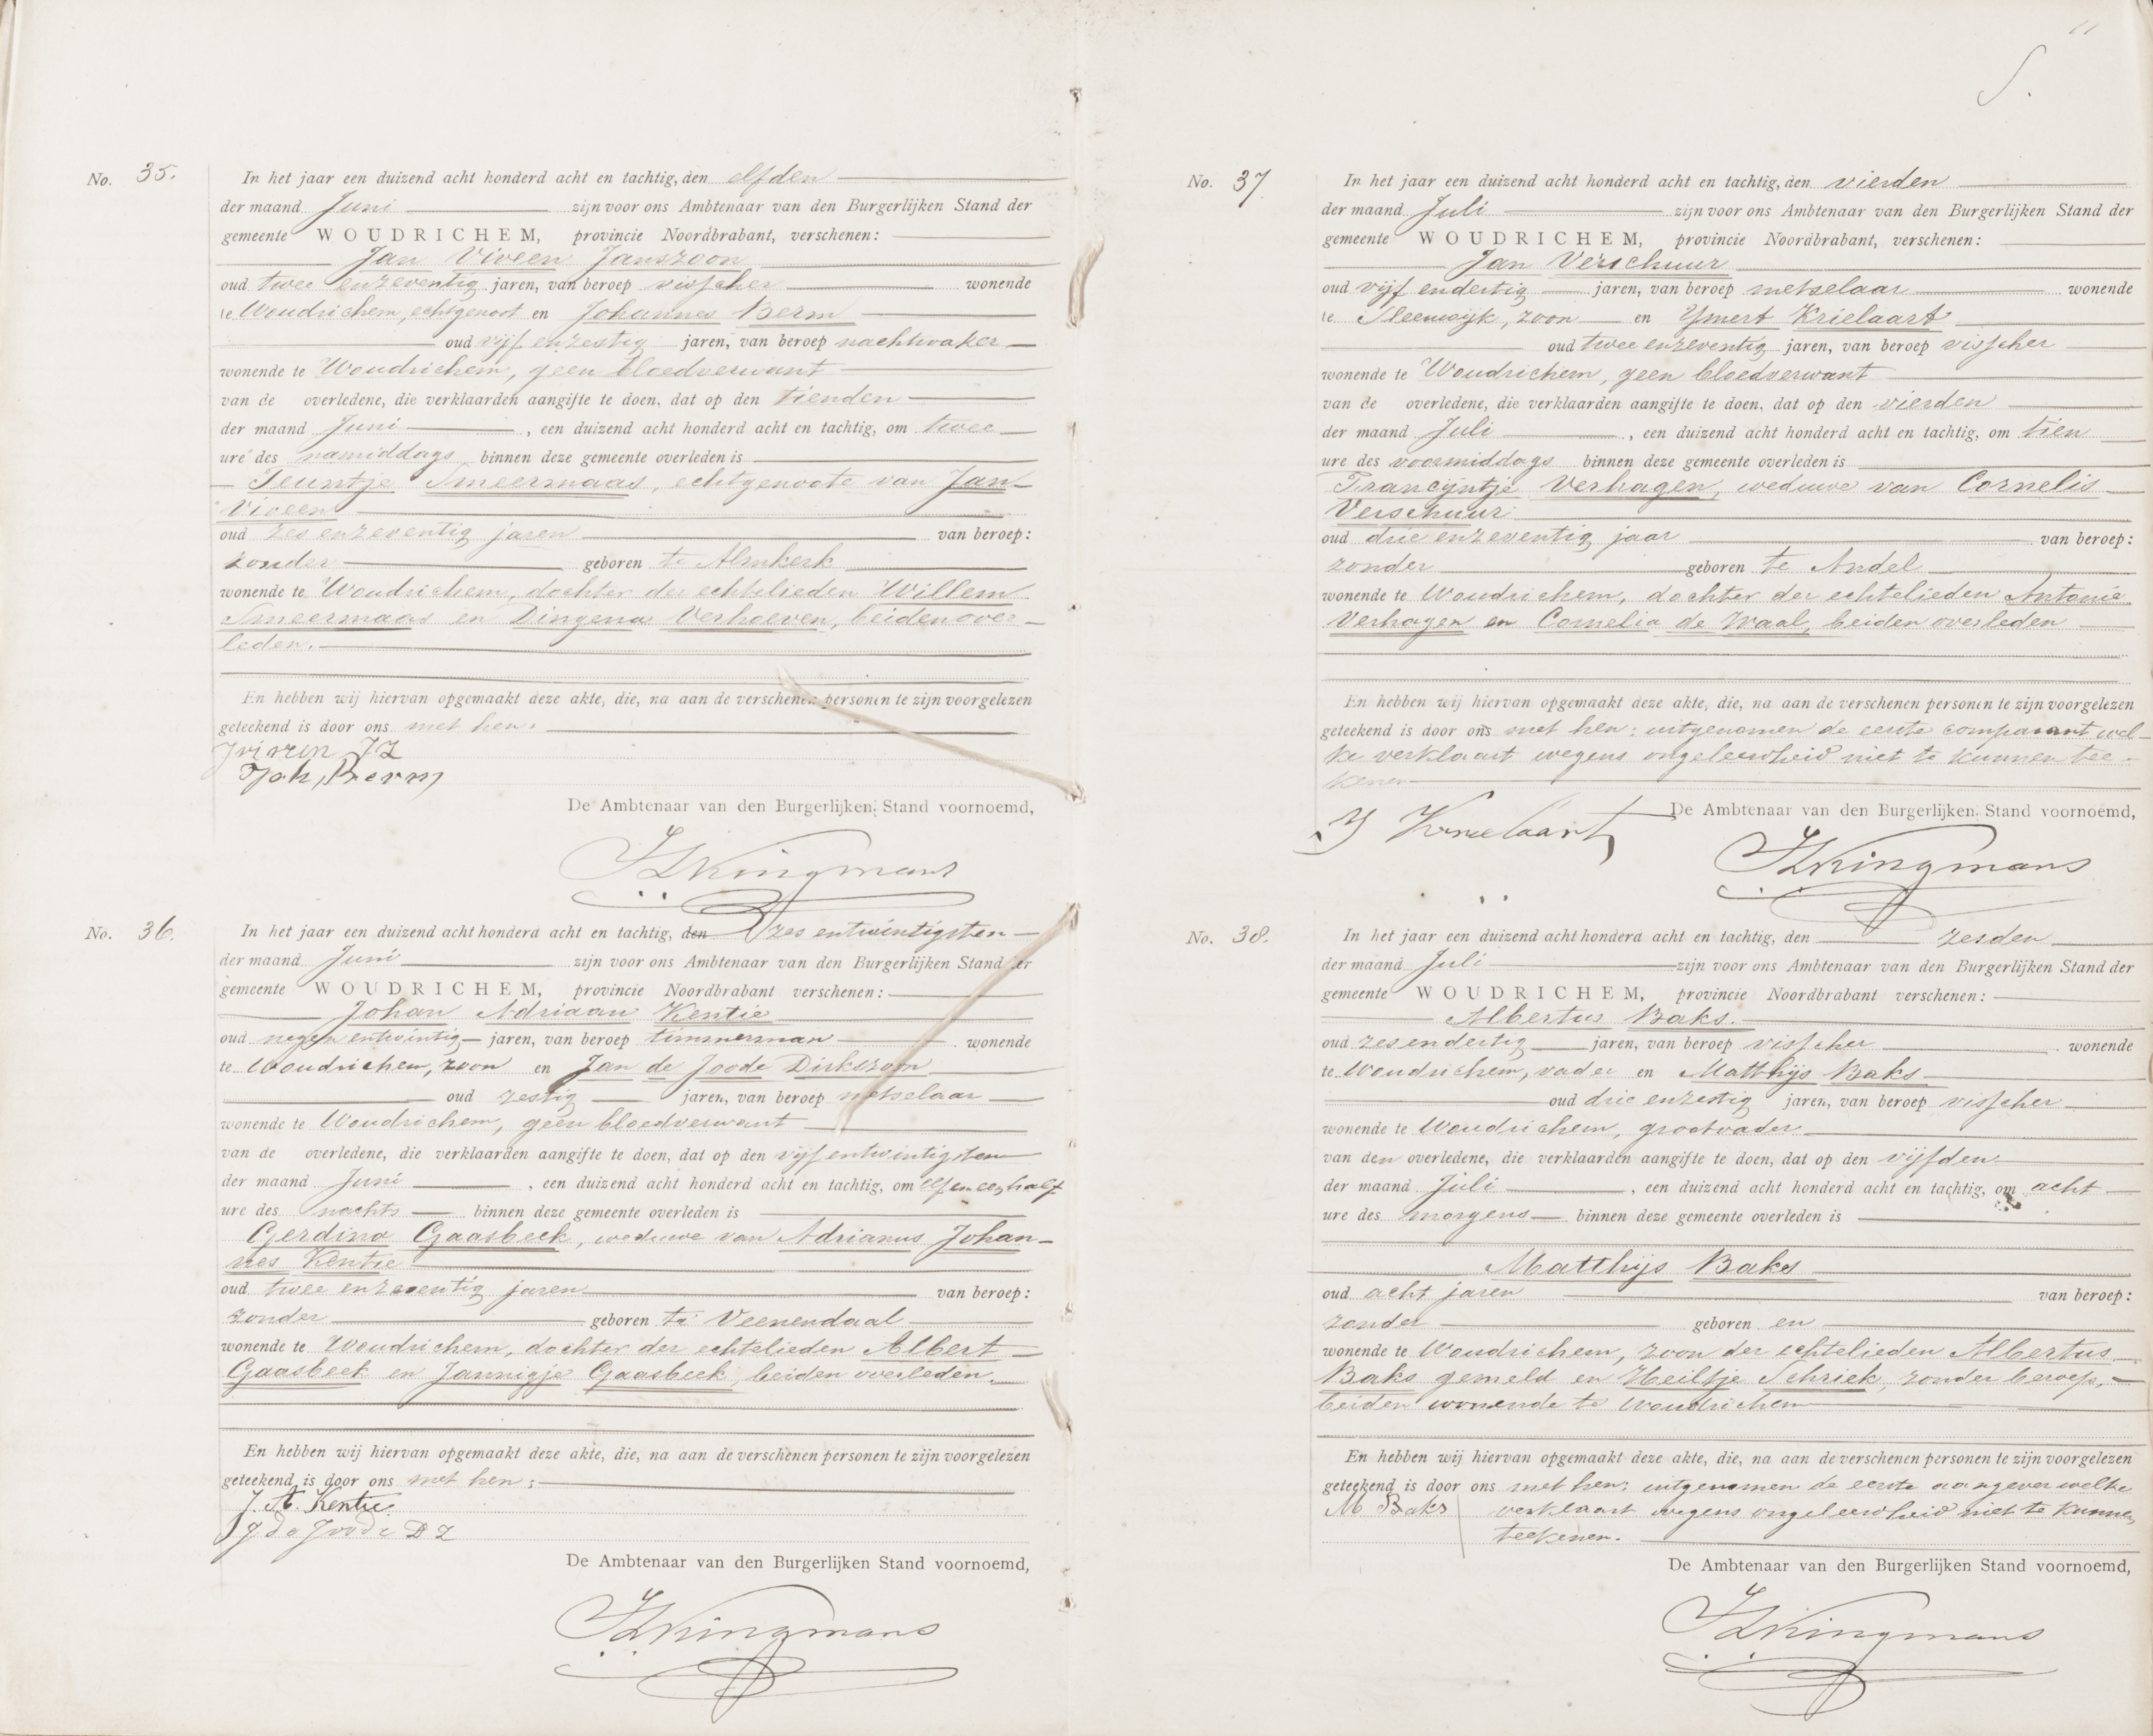 No. 35.
In het jaar een duizend acht honderd acht en tachtig, den elfden
der maand Juni zijn voor ons Ambtenaar van den Burgerlijken Stand der
gemeente WOUDRICHEM, provincie Noordbrabant, verschenen:
Jan Viveen Janszoon
oud twee enzeventig jaren, van beroep visscher wonende
te Woudrichem, echtgenoot en Johannes Berm
oud vijf enzestig jaren, van beroep nachtwaker
wonende te Woudrichem, geen bloedverwant
van de overledene, die verklaarden aangifte te doen, dat op den tienden
der maand Juni, een duizend acht honderd acht en tachtig, om twee
ure des namiddags, binnen deze gemeente overleden is
Teuntje Smeermaas, echtgenoote van Jan
Viveen
oud zes enzeventig jaren van beroep:
zonder geboren te Almkerk
wonende te Woudrichem, dochter der echtelieden Willem
Smeermaas en Dingena Verhoeven, beiden over-
leden.
En hebben wij hiervan opgemaakt deze akte, die, na aan de verschenen personen te zijn voorgelezen
geteekend is door ons met hen.
J viveen JZ
Joh, Berm
De Ambtenaar van den Burgerlijken Stand voornoemd,
Kingmans
No. 36.
In het jaar een duizend acht honderd acht en tachtig, den zes entwintigsten
der maand Juni zijn voor ons Ambtenaar van den Burgerlijken Stand der
gemeente WOUDRICHEM, provincie Noordbrabant verschenen:
Johan Adriaan Kentie
oud negen entwintig jaren, van beroep timmerman wonende
te Woudrichem, zoon en Jan de Joode Dirkszoon
oud zestig jaren, van beroep metselaar
wonende te Woudrichem, geen bloedverwant
van de overledene, die verklaarden aangifte te doen, dat op den vijf entwintigsten
der maand Juni, een duizend acht honderd acht en tachtig, om elf en een half
ure des nachts binnen deze gemeente overleden is
Gerdina Gaasbeek, weduwe van Adrianus Johan-
nes Kentie
oud twee enzeventig jaren van beroep:
zonder geboren te Veenendaal
wonende te Woudrichem, dochter der echtelieden Albert
Gaasbeek en Jannigje Gaasbeek, beiden overleden.
En hebben wij hiervan opgemaakt deze akte, die, na aan de verschenen personen te zijn voorgelezen
geteekend is door ons met hen;
J. A. Kentie
J de Joode DZ
De Ambtenaar van den Burgerlijken Stand voornoemd,
Kingmans
11
No. 37.
In het jaar een duizend acht honderd acht en tachtig, den vierden
der maand Juli zijn voor ons Ambtenaar van den Burgerlijken Stand der
gemeente WOUDRICHEM, provincie Noordbrabant, verschenen:
Jan Verschuur
oud vijf endertig jaren, van beroep metselaar wonende
te Sleeuwijk, zoon en Ymert Krielaart
oud twee enzeventig jaren, van beroep visscher
wonende te Woudrichem, geen bloedverwant
van de overledene, die verklaarden aangifte te doen, dat op den vierden
der maand Juli, een duizend acht honderd acht en tachtig, om tien
ure des voormiddags binnen deze gemeente overleden is
Francijntje Verhagen, weduwe van Cornelis
Verschuur
oud drie enzeventig jaar van beroep:
zonder geboren te Andel
wonende te Woudrichem, dochter der echtelieden Antonie
Verhagen en Cornelia de Waal, beiden overleden
En hebben wij hiervan opgemaakt deze akte, die, na aan de verschenen personen te zijn voorgelezen
geteekend is door ons met hen; uitgenomen de eerste comparant wel-
ke verklaart wegens ongeleerdheid niet te kunnen tee-
kenen
Y Krielaart
De Ambtenaar van den Burgerlijken Stand voornoemd,
Kingmans
No. 38.
In het jaar een duizend acht honderd acht en tachtig, den zesden
der maand Juli zijn voor ons Ambtenaar van den Burgerlijken Stand der
gemeente WOUDRICHEM, provincie Noordbrabant verschenen:
Albertus Baks.
oud zesendertig jaren, van beroep visscher wonende
te Woudrichem, vader en Matthijs Baks
oud drie enzestig jaren, van beroep visscher
wonende te Woudrichem, grootvader
van den overledene, die verklaarden aangifte te doen, dat op den vijfden
der maand Juli, een duizend acht honderd acht en tachtig, om acht
ure des morgens binnen deze gemeente overleden is
Matthijs Baks
oud acht jaren van beroep:
zonder geboren en
wonende te Woudrichem, zoon der echtelieden Albertus
Baks gemeld en Heiltje Schriek, zonder beroep,
beiden wonende te Woudrichem
En hebben wij hiervan opgemaakt deze akte, die, na aan de verschenen personen te zijn voorgelezen
geteekend is door ons met hen; uitgenomen de eerste aangever welke
M Baks verklaart wegens ongeleerdheid niet te kunnen
teekenen.
De Ambtenaar van den Burgerlijken Stand voornoemd,
Kingmans